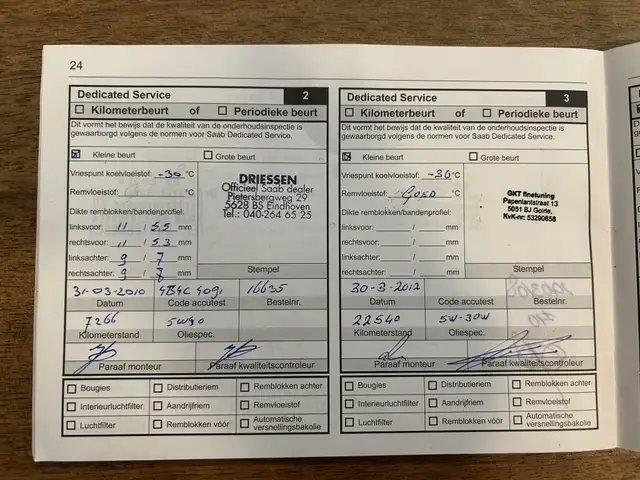 24
Dedicated Service 2
Kilometerbeurt of Periodieke beurt
Dit vormt het bewijs dat de kwaliteit van de onderhoudsinspectie is
gewaarborgd volgens de normen voor Saab Dedicated Service.
Kleine beurt Grote beurt
Vriespunt koelvloeistof: -30 °C
Remvloeistof: °C
Dikte remblokken/bandenprofiel:
linksvoor: 11 / 5.5 mm
rechtsvoor: 11 / 5.3 mm
linksachter: 9 / 7 mm
rechtsachter: 9 / 8 mm
DRIESSEN
Officieel Saab dealer
Pietersbergweg 29
5628 BS Eindhoven
Tel.: 040-264 65 25
Stempel
31-03-2010 4B4C 4091 16635
Datum Code accutest Bestelnr.
7266 5W40
Kilometerstand Oliespec.
Paraaf monteur Paraaf kwaliteitscontroleur
Bougies Distributieriem Remblokken achter
Interieurluchtfilter Aandrijfriem Remvloeistof
Luchtfilter Remblokken vóór Automatische
versnellingsbakolie
Dedicated Service 3
Kilometerbeurt of Periodieke beurt
Dit vormt het bewijs dat de kwaliteit van de onderhoudsinspectie is
gewaarborgd volgens de normen voor Saab Dedicated Service.
Kleine beurt Grote beurt
Vriespunt koelvloeistof: -36 °C
Remvloeistof: GOED °C
Dikte remblokken/bandenprofiel:
linksvoor: / mm
rechtsvoor: / mm
linksachter: / mm
rechtsachter: / mm
GKT finetuning
Papenlantstraat 13
5051 BJ Goirle,
KvK-nr: 53290658
Stempel
30-3-2012
Datum Code accutest Bestelnr.
22540 5W-30W
Kilometerstand Oliespec.
Paraaf monteur Paraaf kwaliteitscontroleur
Bougies Distributieriem Remblokken achter
Interieurluchtfilter Aandrijfriem Remvloeistof
Luchtfilter Remblokken vóór Automatische
versnellingsbakolie